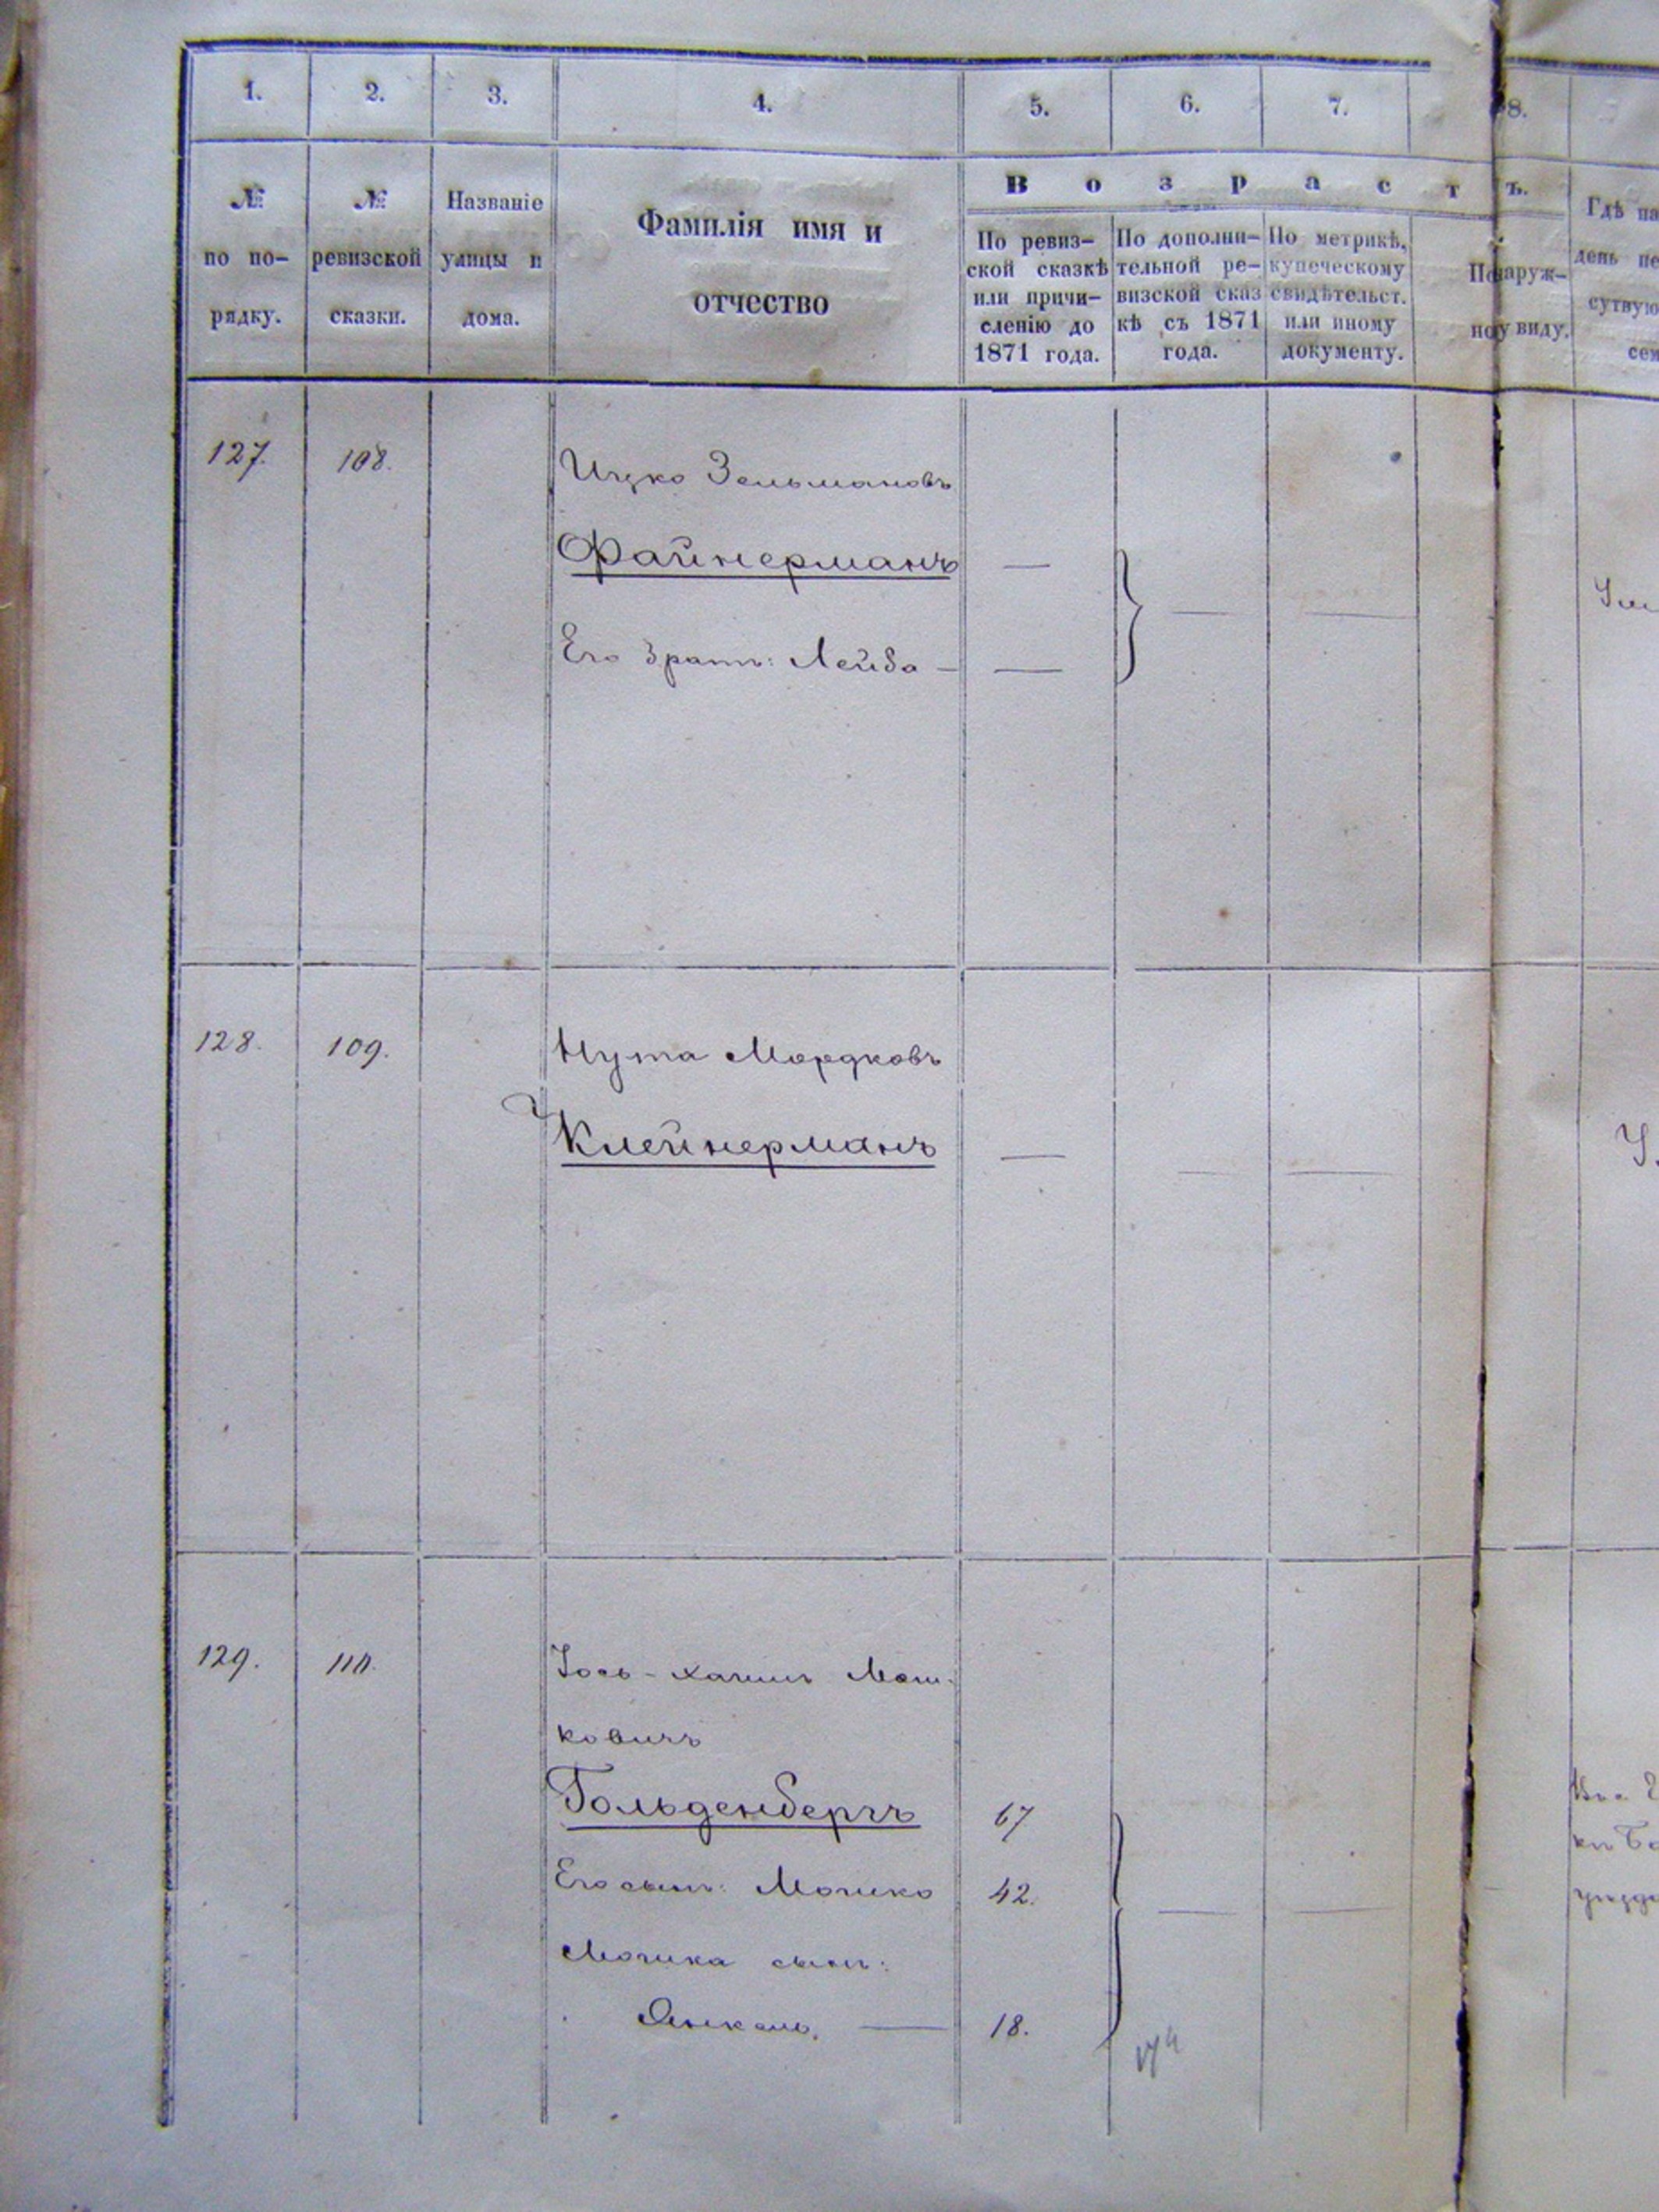 1. 2. 3. 4. 5. 6. 7. 8.
В о з р а с т ъ.
№ по по- рядку.
№ ревизской сказки.
Названіе улицы и дома.
Фамилія имя и
отчество
По ревиз-
ской сказкѣ
или причи-
сленію до
1871 года.
По дополни-
тельной ре-
визской сказ
кѣ съ 1871
года.
По метрикѣ,
купеческому
свидѣтельст.
или иному
документу.
По наруж-
ному виду.
Гдѣ на
день пе
сутвую
сем
127. 108. Ицко Зельмановъ
Файнерманъ —
Его братъ: Лейба — —
128. 109. Нута Мордковъ
Клейнерманъ —
129. 110. Іось-Хаимъ Мош-
ковичъ
Гольденбергъ 67
Его сынъ: Мошко 42.
Мошка сынъ:
Янкель. — 18.